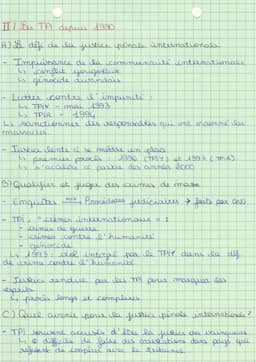 II/ Les TPI depuis 1990
A) Le défi de la justice pénale internationale
- Impuissance de la communauté internationale
↳ conflit yougoslave
↳ génocide rwandais
- Lutter contre l'impunité :
↳ TPIY - mai 1993
↳ TPIR - 1994
↳ sanctionner les responsables qui ont ordonné les
massacres.
- Justice lente à se mettre en place
↳ premier procès : 1996 (TPIY) et 1997 (TPIR)
↳ s'accélère à partir des années 2000
B) Qualifier et juger des crimes de masse
- Enquêtes → Procédures judiciaires → faits par
- TPI : "crimes internationaux" :
- crimes de guerre
- crimes contre l'humanité
- génocide
↳ 1993 : viol intégré par le TPIY dans la déf
de crime contre l'humanité
- Justice rendue par les TPI pour marquer les
esprits
↳ procès longs et complexes
C) Quel avenir pour la justice pénale internationale ?
- TPI souvent accusés d'être la justice des vainqueurs
↳ difficile de faire des arrestations dans pays qui
refusent de coopérer avec le tribunal.